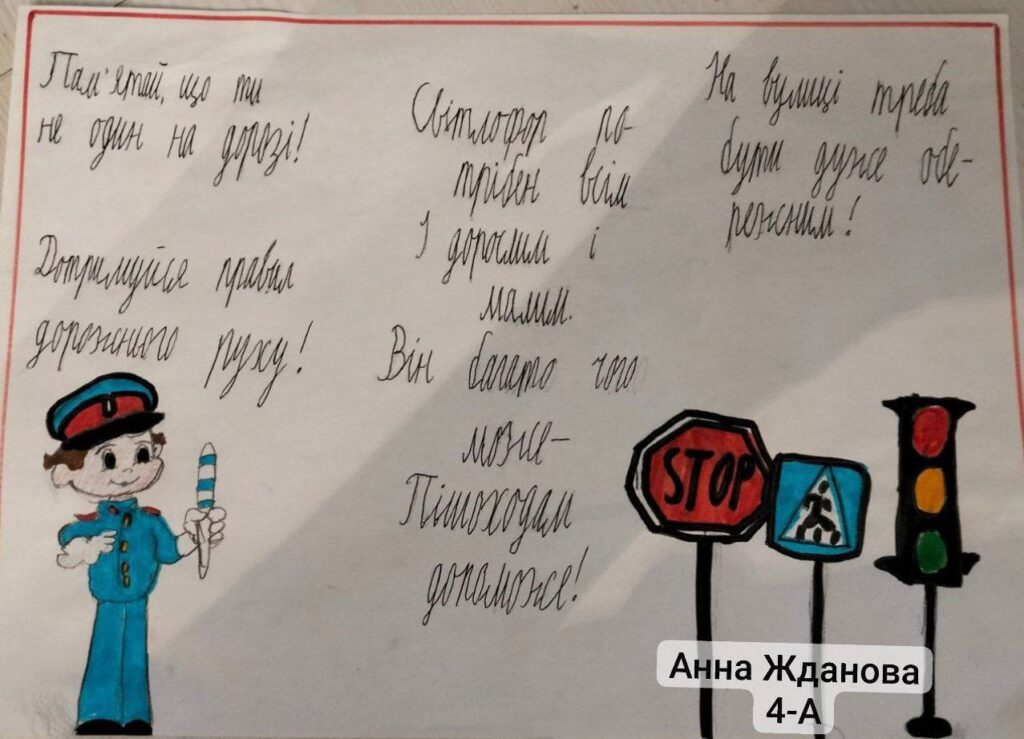 Пам'ятай, що ти
не один на дорозі!
Дотримуйся правил
дорожнього руху!
Світлофор по-
трібен всім
І дорослим і
малим.
Він багато чого
може-
Пішоходам
допоможе!
На вулиці треба
бути дуже обе-
режним!
STOP
Анна Жданова
4-А